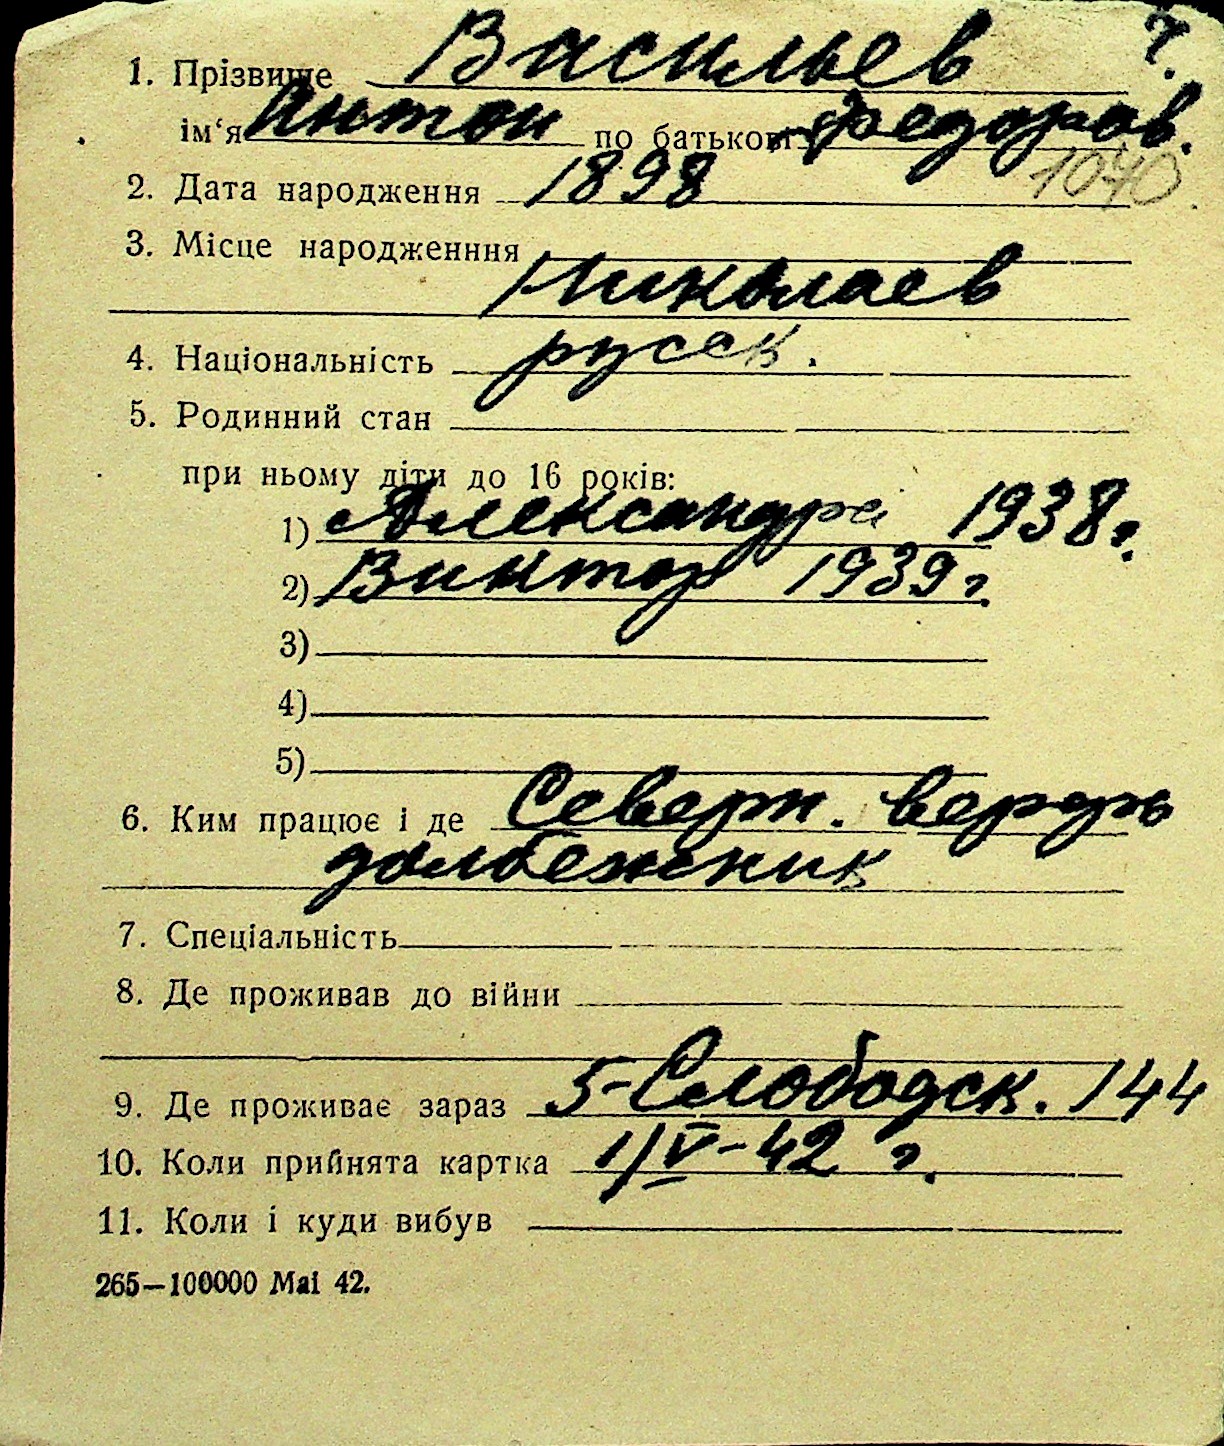 1. Прізвище Васильев ч.
ім‘я Антон по батькові Федоров.
1070
2. Дата народження 1898
3. Місце народженння
Николаев
4. Національність русск.
5. Родинний стан
при ньому діти до 16 років:
1) Александра 1938 г.
2) Виктор 1939 г.
3)
4)
5)
6. Ким працює і де Северн. верфь
долбежник
7. Спеціальність
8. Де проживав до війни
9. Де проживає зараз 5-Слободск. 144
10. Коли прийнята картка 1/V-42 г.
11. Коли і куди вибув
265—100000 Mai 42.